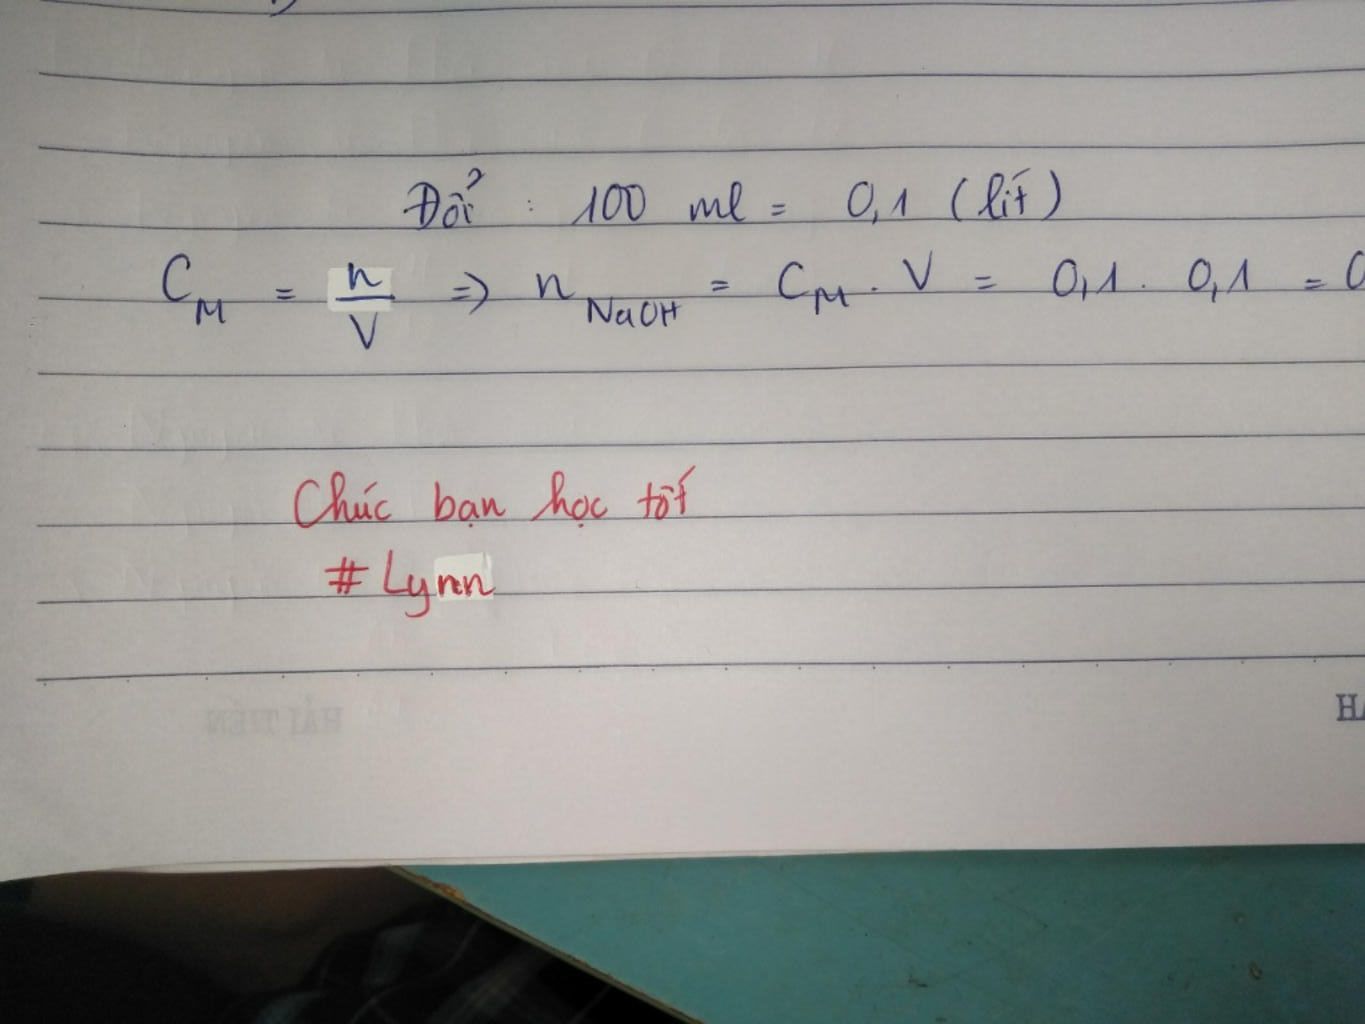 Đổi : 100 ml = 0,1 (lít)
C_M = n/V => n_NaOH = C_M . V = 0,1 . 0,1 = 0
Chúc bạn học tốt
# Lynn
HẢI TIẾN